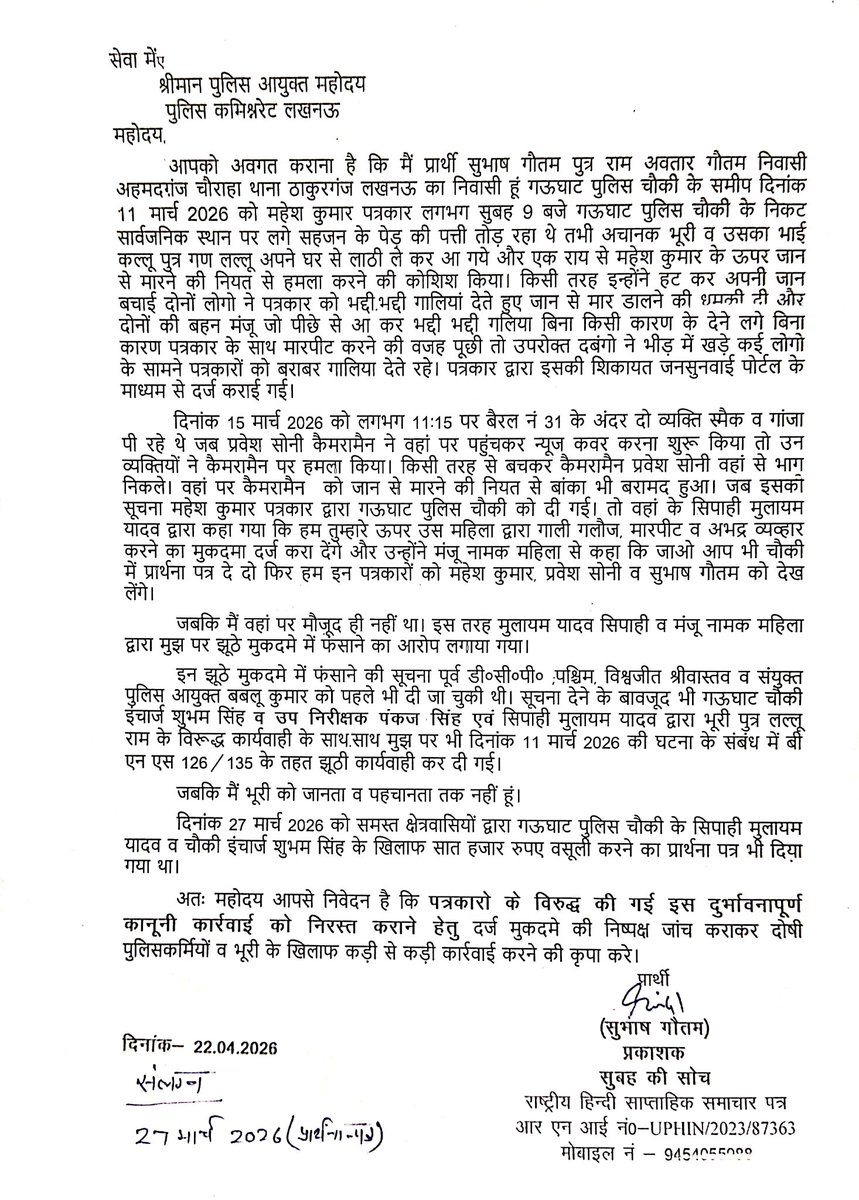 सेवा मेंए
श्रीमान पुलिस आयुक्त महोदय
पुलिस कमिश्नरेट लखनऊ
महोदय,
आपको अवगत कराना है कि मैं प्रार्थी सुभाष गौतम पुत्र राम अवतार गौतम निवासी
अहमदगंज चौराहा थाना ठाकुरगंज लखनऊ का निवासी हूं गऊघाट पुलिस चौकी के समीप दिनांक
11 मार्च 2026 को महेश कुमार पत्रकार लगभग सुबह 9 बजे गऊघाट पुलिस चौकी के निकट
सार्वजनिक स्थान पर लगे सहजन के पेड़ की पत्ती तोड़ रहा थे तभी अचानक भूरी व उसका भाई
कल्लू पुत्र गण लल्लू अपने घर से लाठी ले कर आ गये और एक राय से महेश कुमार के ऊपर जान
से मारने की नियत से हमला करने की कोशिश किया। किसी तरह इन्होंने हट कर अपनी जान
बचाई दोनों लोगो ने पत्रकार को भद्दी.भद्दी गालियां देते हुए जान से मार डालने की धमकी दी और
दोनों की बहन मंजू जो पीछे से आ कर भद्दी भद्दी गलिया बिना किसी कारण के देने लगे बिना
कारण पत्रकार के साथ मारपीट करने की वजह पूछी तो उपरोक्त दबंगो ने भीड़ में खड़े कई लोगो
के सामने पत्रकारों को बराबर गालिया देते रहे। पत्रकार द्वारा इसकी शिकायत जनसुनवाई पोर्टल के
माध्यम से दर्ज कराई गई।
दिनांक 15 मार्च 2026 को लगभग 11:15 पर बैरल नं 31 के अंदर दो व्यक्ति स्मैक व गांजा
पी रहे थे जब प्रवेश सोनी कैमरामैन ने वहां पर पहुंचकर न्यूज कवर करना शुरू किया तो उन
व्यक्तियों ने कैमरामैन पर हमला किया। किसी तरह से बचकर कैमरामैन प्रवेश सोनी वहां से भाग
निकले। वहां पर कैमरामैन को जान से मारने की नियत से बांका भी बरामद हुआ। जब इसकी
सूचना महेश कुमार पत्रकार द्वारा गऊघाट पुलिस चौकी को दी गई। तो वहां के सिपाही मुलायम
यादव द्वारा कहा गया कि हम तुम्हारे ऊपर उस महिला द्वारा गाली गलौज, मारपीट व अभद्र व्यव्हार
करने का मुकदमा दर्ज करा देंगे और उन्होंने मंजू नामक महिला से कहा कि जाओ आप भी चौकी
में प्रार्थना पत्र दे दो फिर हम इन पत्रकारों को महेश कुमार, प्रवेश सोनी व सुभाष गौतम को देख
लेंगे।
जबकि मैं वहां पर मौजूद ही नहीं था। इस तरह मुलायम यादव सिपाही व मंजू नामक महिला
द्वारा मुझ पर झूठे मुकदमे में फंसाने का आरोप लगाया गया।
इन झूठे मुकदमे में फंसाने की सूचना पूर्व डी०सी०पी० ;पश्चिम, विश्वजीत श्रीवास्तव व संयुक्त
पुलिस आयुक्त बबलू कुमार को पहले भी दी जा चुकी थी। सूचना देने के बावजूद भी गऊघाट चौकी
इंचार्ज शुभम सिंह व उप निरीक्षक पंकज सिंह एवं सिपाही मुलायम यादव द्वारा भूरी पुत्र लल्लू
राम के विरूद्ध कार्यवाही के साथ.साथ मुझ पर भी दिनांक 11 मार्च 2026 की घटना के संबंध में बी
एन एस 126/135 के तहत झूठी कार्यवाही कर दी गई।
जबकि मैं भूरी को जानता व पहचानता तक नहीं हूं।
दिनांक 27 मार्च 2026 को समस्त क्षेत्रवासियों द्वारा गऊघाट पुलिस चौकी के सिपाही मुलायम
यादव व चौकी इंचार्ज शुभम सिंह के खिलाफ सात हजार रुपए वसूली करने का प्रार्थना पत्र भी दिया
गया था।
अतः महोदय आपसे निवेदन है कि पत्रकारो के विरुद्ध की गई इस दुर्भावनापूर्ण
कानूनी कार्रवाई को निरस्त कराने हेतु दर्ज मुकदमे की निष्पक्ष जांच कराकर दोषी
पुलिसकर्मियों व भूरी के खिलाफ कड़ी से कड़ी कार्रवाई करने की कृपा करे।
प्रार्थी
(सुभाष गौतम)
प्रकाशक
सुबह की सोच
राष्ट्रीय हिन्दी साप्ताहिक समाचार पत्र
आर एन आई नं0–UPHIN/2023/87363
मोबाइल नं –
दिनांक– 22.04.2026
संलग्न
27 मार्च 2026 (प्रार्थना-पत्र)